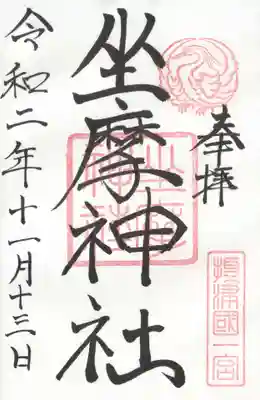 奉拝
摂津國一宮
坐摩神社
令和二年十一月十三日